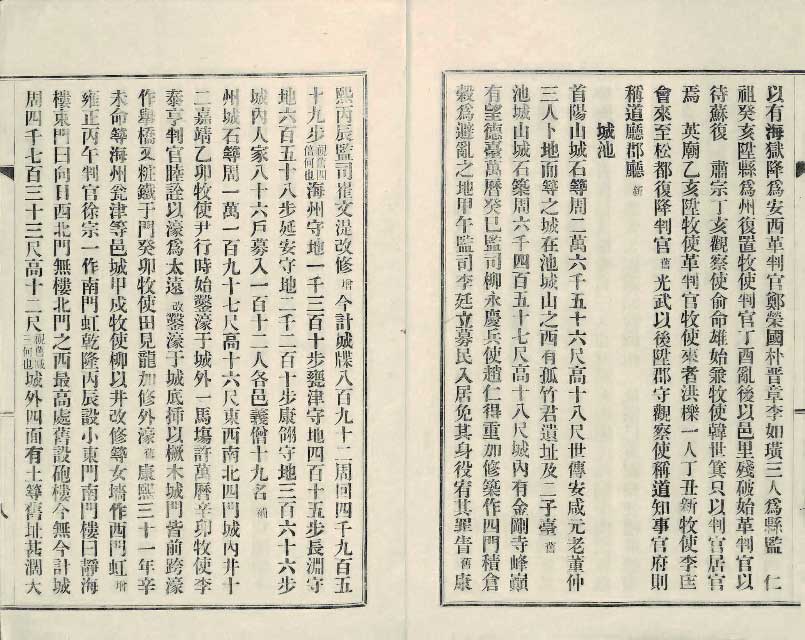 以有海獄降爲安西革判官鄭榮國朴晋章李如璜三人爲縣監　仁
祖癸亥陞縣爲州復置牧使判官丁酉亂後以邑里殘破始革判官以
待蘇復　肅宗丁亥觀察使俞命雄始兼牧使韓世箕只以判官居官
焉　英廟乙亥陞牧使革判官牧使來者洪樑一人丁丑新牧使李
會來至松都復降判官舊　光武以後陞郡守觀察使稱道知事官府則
稱道廳郡廳新
城池
首陽山城石築周二萬六千五十六尺高十八尺世傳安咸元老董仲
三人卜地而築之城在池城山之西有孤竹君遺址及二子臺舊
池城山城石築周六千四百五十七尺高十八尺城內有金剛寺峰巓
有望德臺萬曆癸巳監司柳永慶兵使趙仁得重加修築作四門積倉
穀爲避亂之地甲午監司李廷立募民入居免其身役宥其罪眚舊康
熙丙辰監司崔文湜改修增今計城牒八百九十二周回四千九百五
十九步視舊四倍何也海州守地一千三百十步甕津守地四百十五步長淵守
地六百五十八步延安守地二千二百十步康翎守地三百六十六步
城內人家八十六戶募入一百十二人各邑義僧十九名補
州城石築周一萬一百九十七尺高十六尺東西南北四門城內井十
二嘉靖乙卯牧使尹行時始鑿濠于城外一馬塲許萬曆辛卯牧使李
泰亨判官睦詮以濠爲太遠改鑿濠于城底揷以橛木城門皆前跨濠
作舉橋又粧鐵于門癸卯牧使田見龍加修外濠舊康熙三十一年辛
未命築海州瓮津等邑城甲戌牧使柳以井改修築女墻作西門虹增
雍正丙午判官徐宗一作南門虹乾隆丙辰設小東門南門樓曰靜海
樓東門曰向日西北門無樓北門之西最高處舊設砲樓今無今計城
周四千七百三十三尺高十二尺視舊減三何也城外四面有土築舊址甚濶大
八